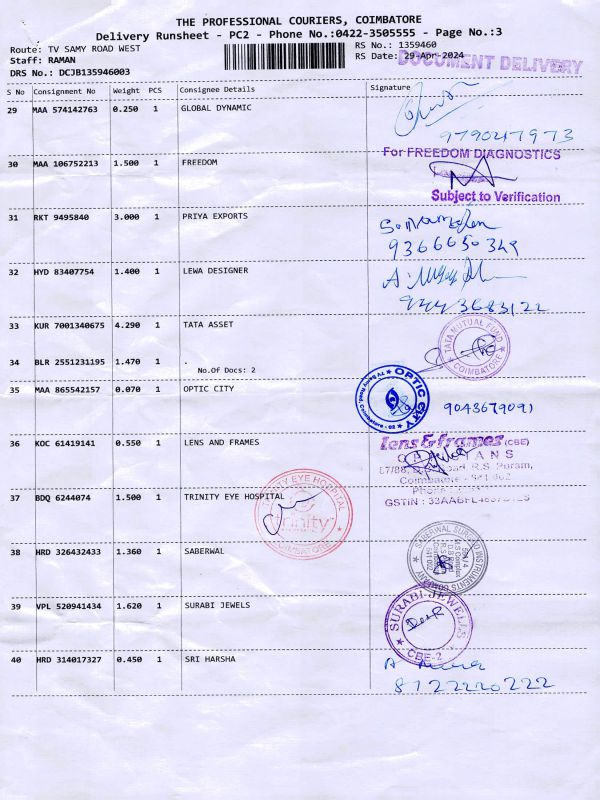 THE PROFESSIONAL COURIERS, COIMBATORE
Delivery Runsheet - PC2 - Phone No.:0422-3505555 - Page No.:3
Route: TV SAMY ROAD WEST
Staff: RAMAN
DRS No.: DCJB135946003
RS No.: 1359460
RS Date: 29-Apr-2024
DOCUMENT DELIVERY
S No Consignment No Weight PCS Consignee Details Signature
29 MAA 574142763 0.250 1 GLOBAL DYNAMIC
9790417973
30 MAA 106752213 1.500 1 FREEDOM
For FREEDOM DIAGNOSTICS
Subject to Verification
31 RKT 9495840 3.000 1 PRIYA EXPORTS
9366650349
32 HYD 83407754 1.400 1 LEWA DESIGNER
33 KUR 7001340675 4.290 1 TATA ASSET
TATA MUTUAL FUND
COIMBATORE
34 BLR 2551231195 1.470 1 .
No.Of Docs: 2
35 MAA 865542157 0.070 1 OPTIC CITY
OPTIC CITY
TV Samy Road, Coimbatore - 02
9043679091
36 KOC 61419141 0.550 1 LENS AND FRAMES
Lens & frames (CBE)
R.S. Puram,
37 BDQ 6244074 1.500 1 TRINITY EYE HOSPITAL
TRINITY EYE HOSPITAL
Trinity
COIMBATORE
38 HRD 326432433 1.360 1 SABERWAL
39 VPL 520941434 1.620 1 SURABI JEWELS
SURABI JEWELLS
CBE-2
40 HRD 314017327 0.450 1 SRI HARSHA
8122220222